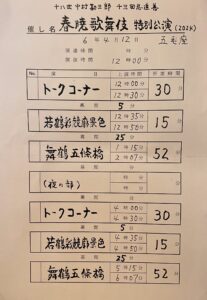 十八世中村勘三郎 十三回忌追善
催し名 春暁歌舞伎 特別公演 (2024)
6年4月12日 五毛座
開演時間 時 分
開演時間 12時00分
No. 上演時間 所要時間
トークコーナー 12時00分 12時30分 30分
幕間 5分
若鶴彩競廓景色 12時35分 12時50分 15分
幕間 25分
舞鶴五條橋 1時15分 2時07分 52分
(夜の部) 時 分 時 分 分
トークコーナー 4時00分 4時30分 30分
幕間 5分
若鶴彩競廓景色 4時35分 4時50分 15分
幕間 25分
舞鶴五條橋 5時15分 6時07分 52分